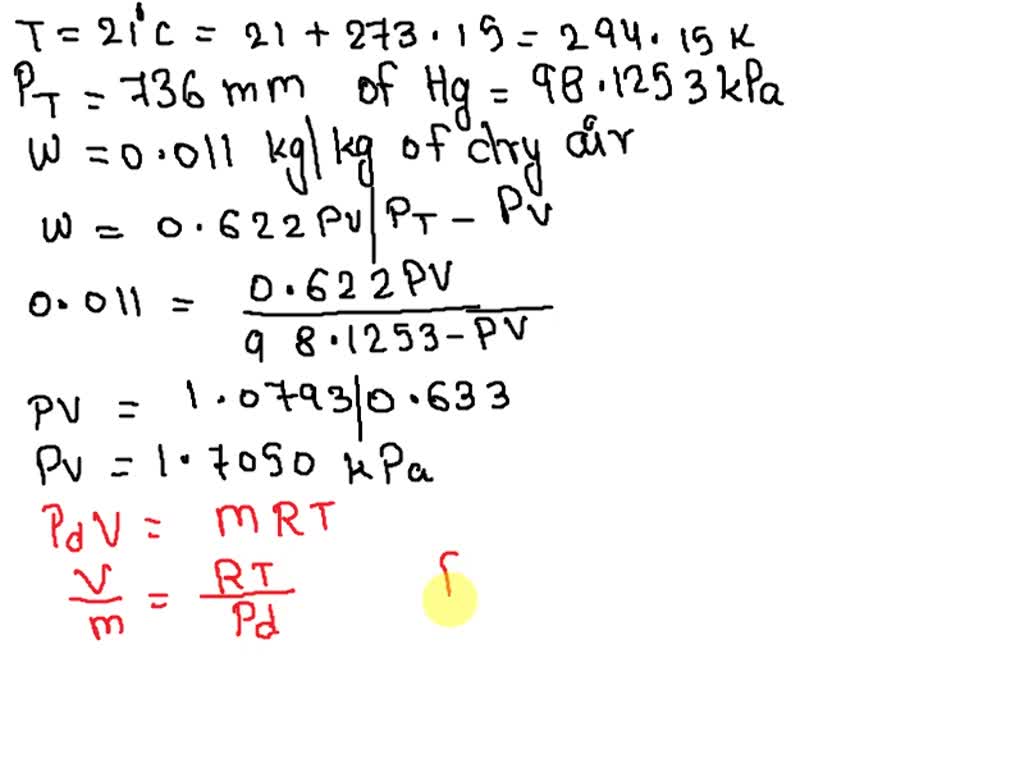 T = 21°C = 21 + 273.15 = 294.15 K
PT = 736 mm of Hg = 98.1253 kPa
W = 0.011 kg/kg of dry air
W = 0.622 PV | PT - PV
0.011 = 0.622 PV / 98.1253 - PV
PV = 1.0793 | 0.633
PV = 1.7050 kPa
PdV = mRT
V/m = RT/Pd